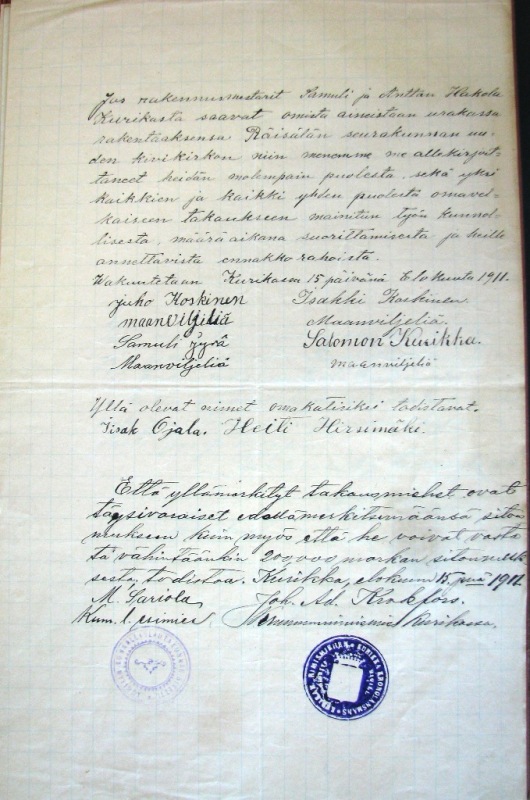 Jos rakennusmestarit Samuli ja Anttan Hakola
Kurikasta saavat omista aineistaan urakassa
rakentaaksensa Räisälän seurakunnan uu-
den kivikirkon niin menemme me allekirjoit-
taneet heidän molempain puolesta, sekä yksi
kaikkien ja kaikki yhden puolesta omavel-
kaiseen takaukseen mainitun työn kunnol-
lisesta, määräaikana suorittamisesta ja heille
annettavista ennakko rahoista.
Vakuutetaan Kurikassa 15 päivänä Elokuuta 1911.
Juho Koskinen Isakki Koskinen
maanviljeliä Maanviljeliä.
Samuli Jyrä Salomon Kurikka.
Maanviljeliä maanviljeliä
Yllä olevat nimet omakätisiksi todistavat.
Iisak Ojala. Heiti Hirsimäki.
Että yllämerkityt takausmiehet ovat
täysivaraiset edellämerkitsemäänsä sitou
mukseen kuin myös että he voivat vasta
ta vähintäänkin 200,000 markan sitoumuk
sesta, todistaa. Kurikka, elokuun 15 p:nä 1911.
M. Sariola Joh. Ad. Krokfors.
Kun. l. esimies Kurikassa.